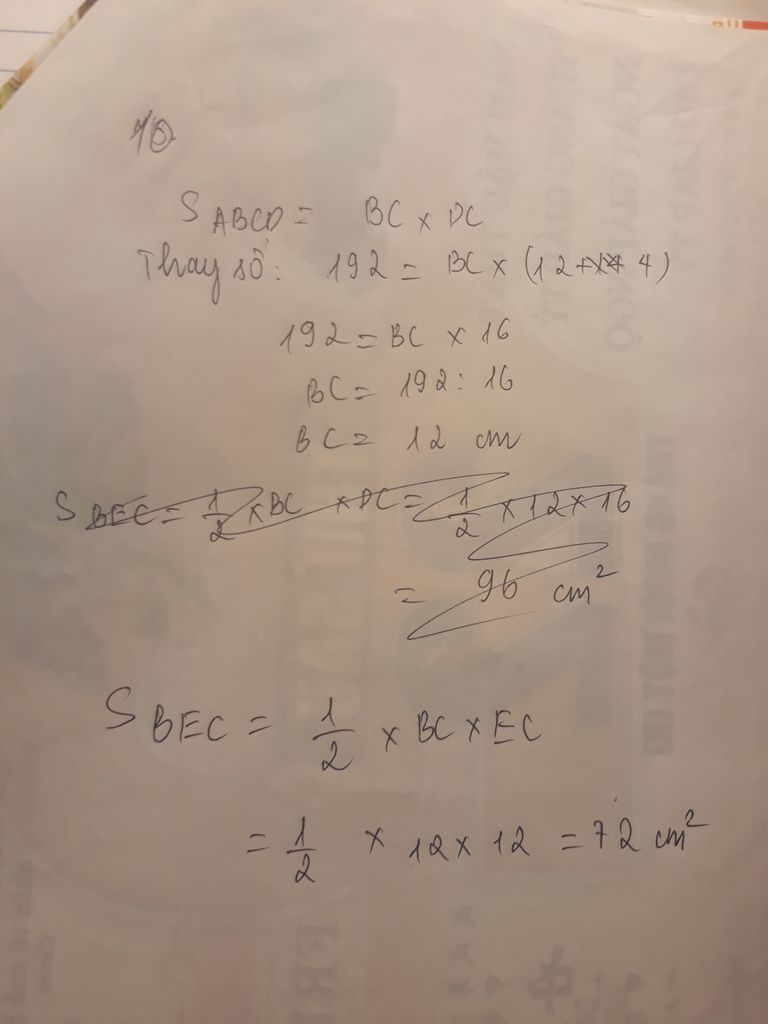 10
S ABCD = BC x DC
Thay số: 192 = BC x (12 + 4)
192 = BC x 16
BC = 192 : 16
BC = 12 cm
S BEC = 1/2 x BC x DC = 1/2 x 12 x 16
= 96 cm²
S BEC = 1/2 x BC x EC
= 1/2 x 12 x 12 = 72 cm²